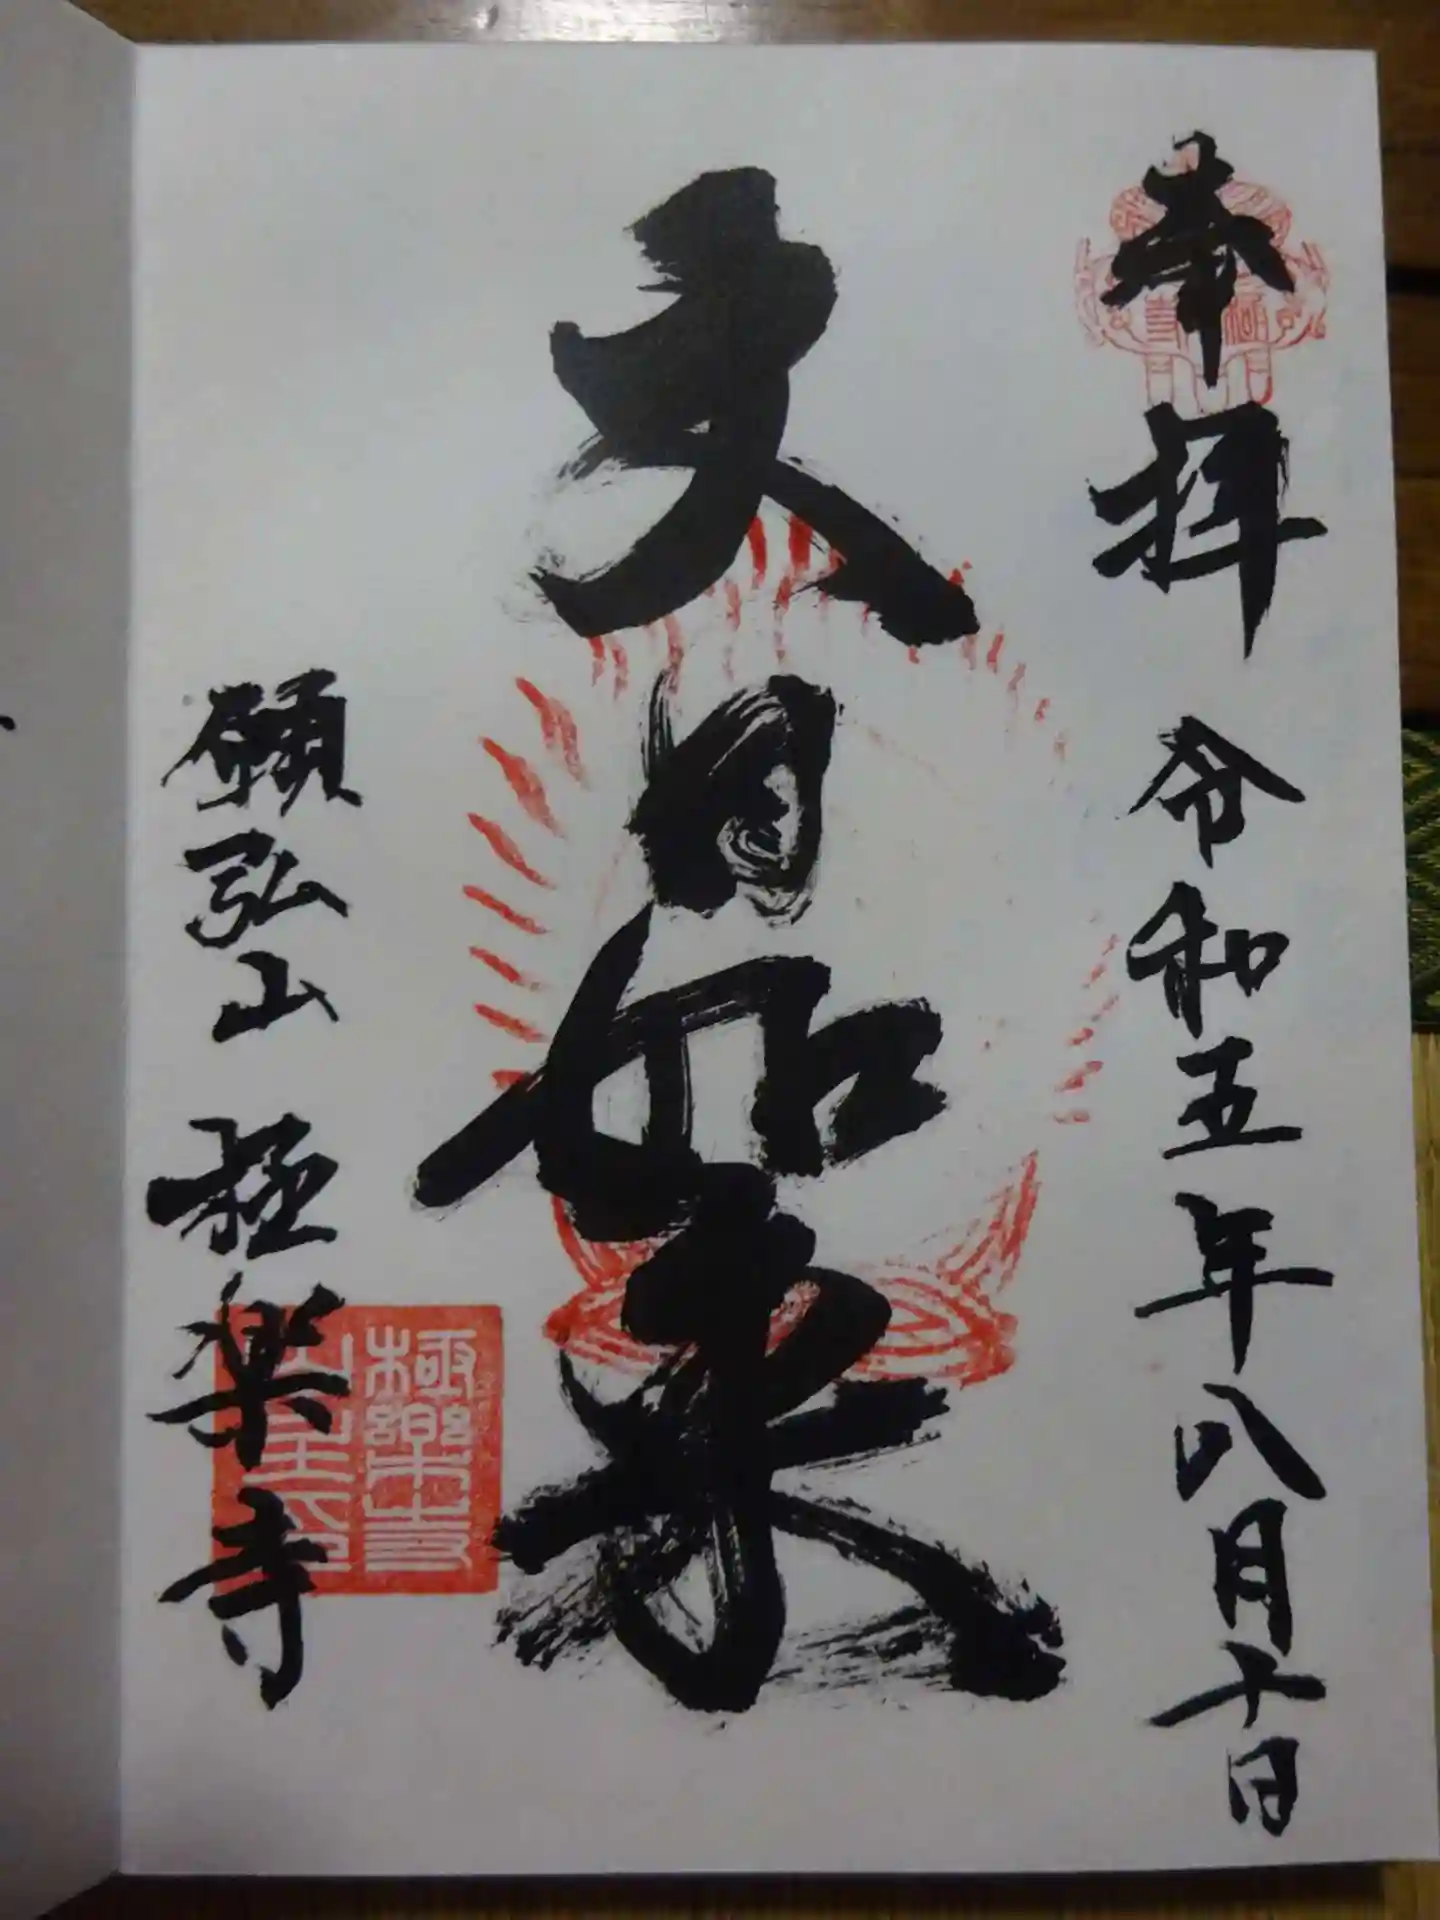 奉拝 令和五年八月十日
大日如来
願弘山 極楽寺
極樂寺